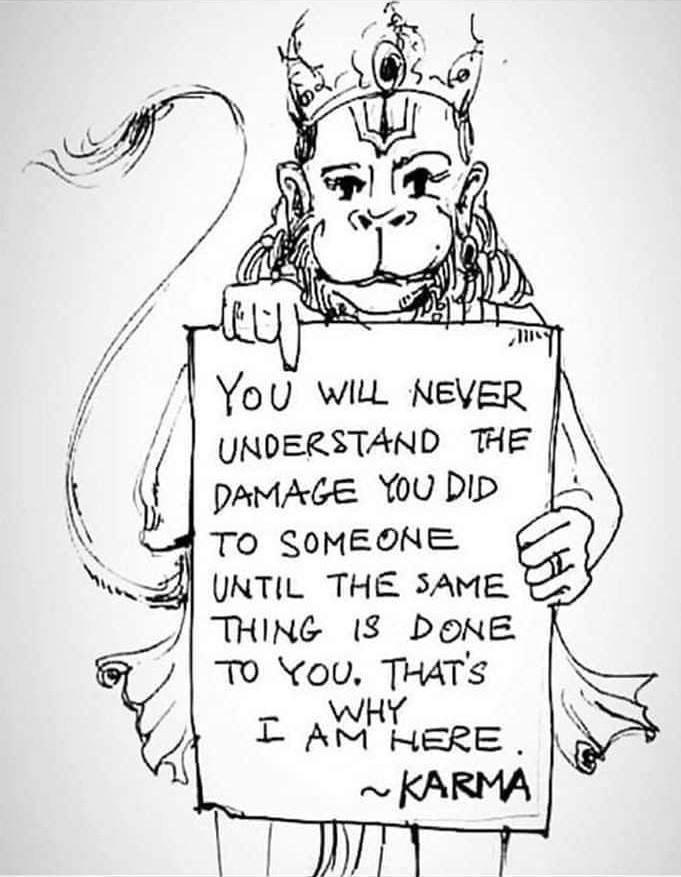 YOU WILL NEVER
UNDERSTAND THE
DAMAGE YOU DID
TO SOMEONE
UNTIL THE SAME
THING IS DONE
TO YOU. THAT'S
WHY
I AM HERE.
~KARMA